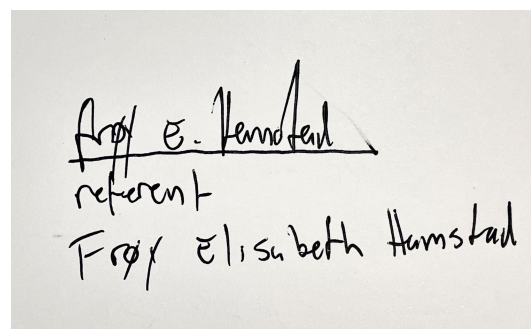 Frøy E. Hamstad
referent
Frøy Elisabeth Hamstad